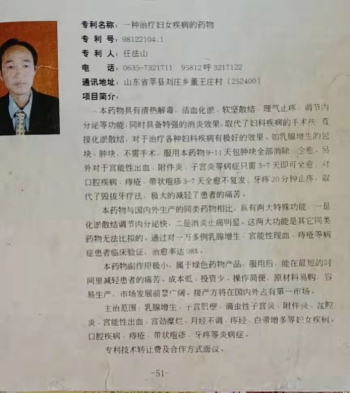 专利名称：一种治疗妇女疾病的药物
专 利 号：98122104.1
专 利 人：任法山
电    话：0635-7321711  95812呼3217122
通讯地址：山东省莘县刘庄乡董王庄村（252400）
项目简介：
本药物具有清热解毒、活血化瘀、软坚散结、理气止疼、调节内
分泌等功能，同时具备特强的消炎效果，取代了妇科疾病的手术疾，直
接化淤散结，对于治疗各种妇科疾病有极好的效果。如乳腺增生的肿
块，不需手术，服用本药物9-11天包肿块全部消除，全愈。另
外对于宫能性出血、附件炎、子宫炎等病症只需3-7天即可全愈，对
口腔疾病、痔疮、带状疱疹3-7天全愈不复发，牙疼20分钟止疼，取
代了毁拔牙疗法，极大的减轻了患者的痛苦。
本药物与国内外生产的同类药物相比，具有两大特殊功能，一是
化淤散结调节内分泌快，二是消炎止痛明显。这两大功能是其它同类
药物无法比拟的。通过对一万多例乳腺增生、宫能性现血、痔疮等病
症患者临床验证，治愈率达98%。
本药物副作用极小，属于绿色药物产品，服用后，能在最短的时
间里减轻患者的痛苦。成本低，投资少，操作简便，原材料易购，容
易生产，市场发展前景广阔。投产方将在国内外占有第一市场。
主治范围：乳腺增生、子宫肌瘤、滴虫性子宫炎、附件炎、盆腔
炎、宫能性出血、宫劲糜烂、月经不调、疼经、白带增多等妇女疾病，
口腔疾病、痔疮、带状疱疹、牙疼等炎病症。
专利技术转让费及合作方式面议。
-51-